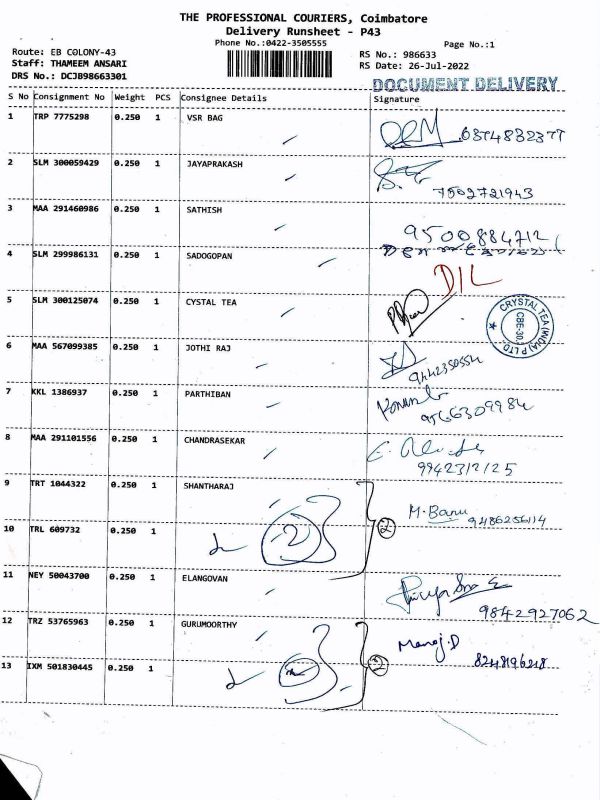 THE PROFESSIONAL COURIERS, Coimbatore
Delivery Runsheet - P43
Phone No.:0422-3505555
Page No.:1
Route: EB COLONY-43
Staff: THAMEEM ANSARI
DRS No.: DCJB98663301
RS No.: 986633
RS Date: 26-Jul-2022
DOCUMENT DELIVERY
S No Consignment No Weight PCS Consignee Details Signature
1 TRP 7775298 0.250 1 VSR BAG
2 SLM 300059429 0.250 1 JAYAPRAKASH
7502721943
3 MAA 291460986 0.250 1 SATHISH
9500884712
4 SLM 299986131 0.250 1 SADOGOPAN
D/L
5 SLM 300125074 0.250 1 CYSTAL TEA
CRYSTAL TEA (INDIA) P LTD
CBE-30.
6 MAA 567099385 0.250 1 JOTHI RAJ
9442350554
7 KKL 1386937 0.250 1 PARTHIBAN
9566309984
8 MAA 291101556 0.250 1 CHANDRASEKAR
9942312125
9 TRT 1044322 0.250 1 SHANTHARAJ M. Banu 9486256114
2 2
10 TRL 609732 0.250 1
11 NEY 50043700 0.250 1 ELANGOVAN
9842927062
12 TRZ 53765963 0.250 1 GURUMOORTHY Manoj.D
8248196248
2
13 IXM 501830445 0.250 1